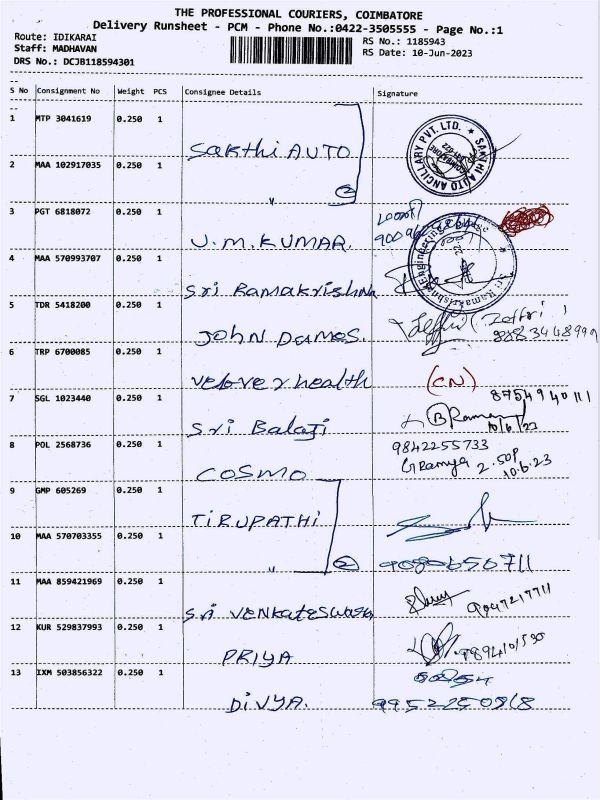 THE PROFESSIONAL COURIERS, COIMBATORE
Delivery Runsheet - PCM - Phone No.:0422-3505555 - Page No.:1
Route: IDIKARAI
Staff: MADHAVAN
DRS No.: DCJB118594301
RS No.: 1185943
RS Date: 10-Jun-2023
S No Consignment No Weight PCS Consignee Details Signature
1 MTP 3041619 0.250 1 Sakthi AUTO
SAKTHI AUTO ANCILLARY PVT. LTD.
2 MAA 102917035 0.250 1 " 2
3 PGT 6818072 0.250 1 U.M.KUMAR.
4 MAA 570993707 0.250 1 Sri Ramakrishna
Sri Ramakrishna Engineering College
5 TDR 5418200 0.250 1 JOHN DAMOS.
6 TRP 6700085 0.250 1 Velover health (CN)
7 SGL 1023440 0.250 1 Sri Balaji 8754940111
10/6/23
8 POL 2568736 0.250 1 COSMO 9842255733
G Ramya 2.50p
10.6.23
9 GMP 605269 0.250 1 TIRUPATHI
10 MAA 570703355 0.250 1 " 2 9080656711
11 MAA 859421969 0.250 1 Sri VENKATESWARA
12 KUR 529837993 0.250 1 PRIYA
13 IXM 503856322 0.250 1 DIVYA. 9952250868